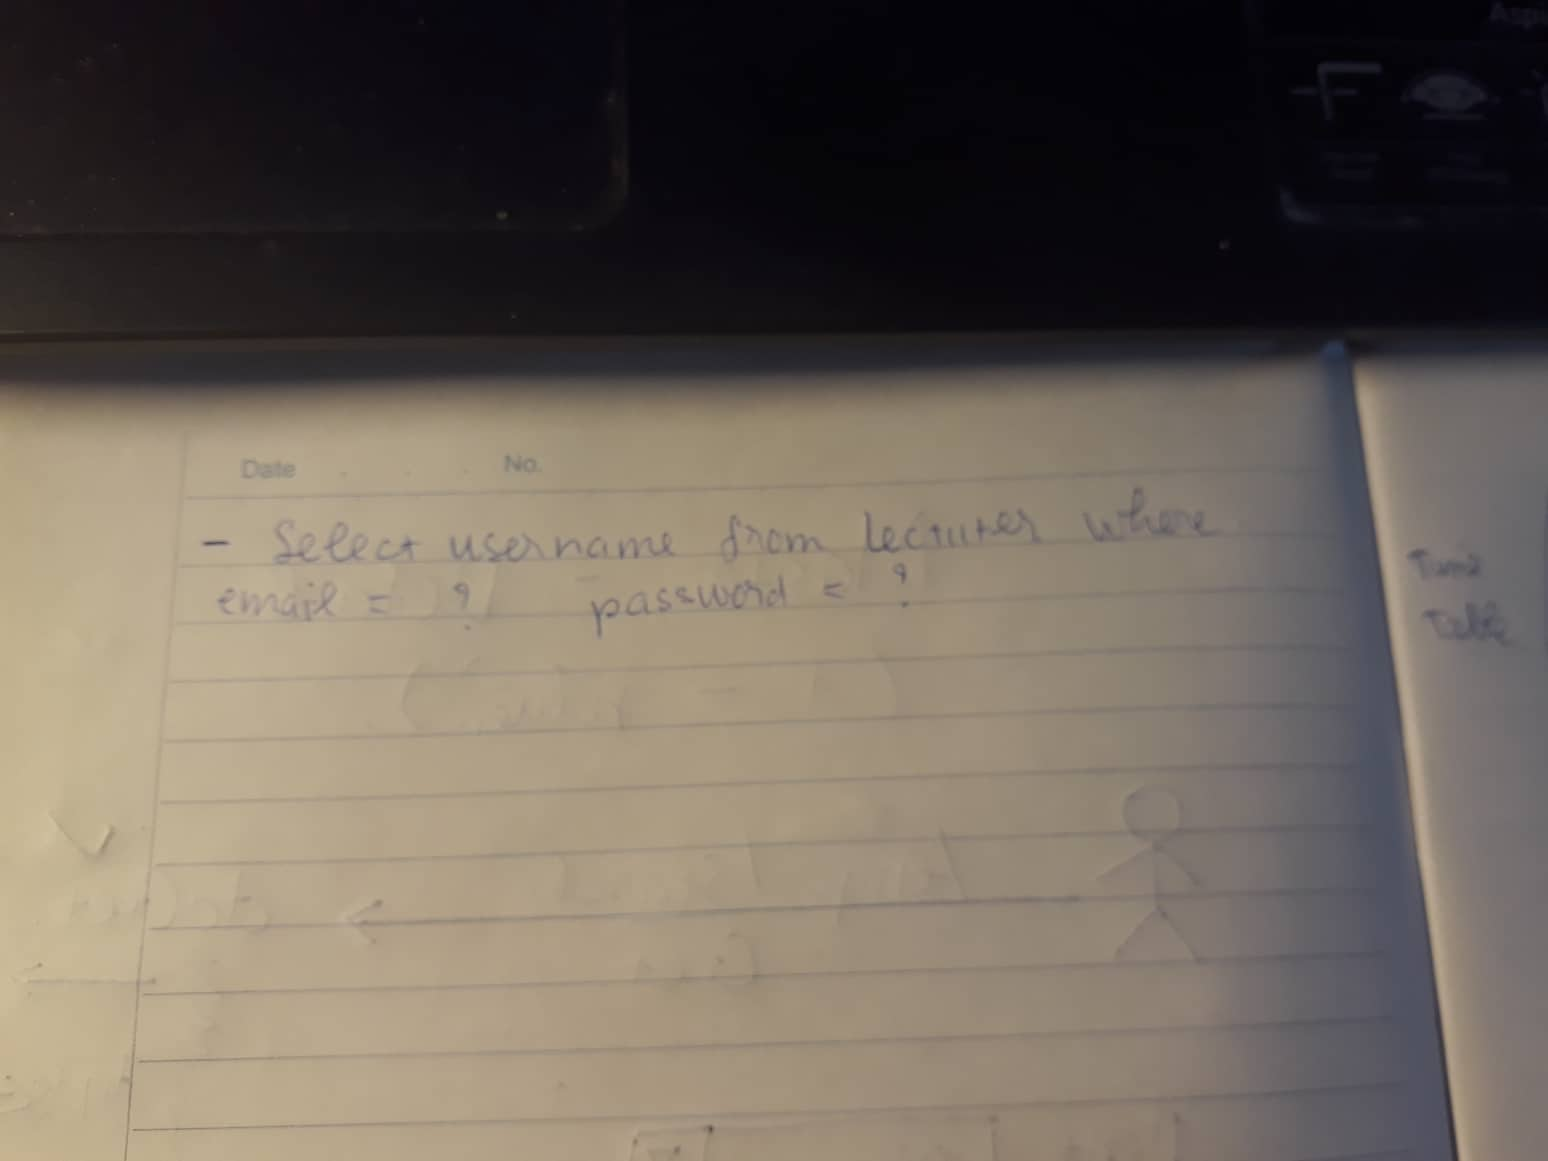 Date . . . No.
- Select username from lecturer where
email = ? password = ?
Time
Table